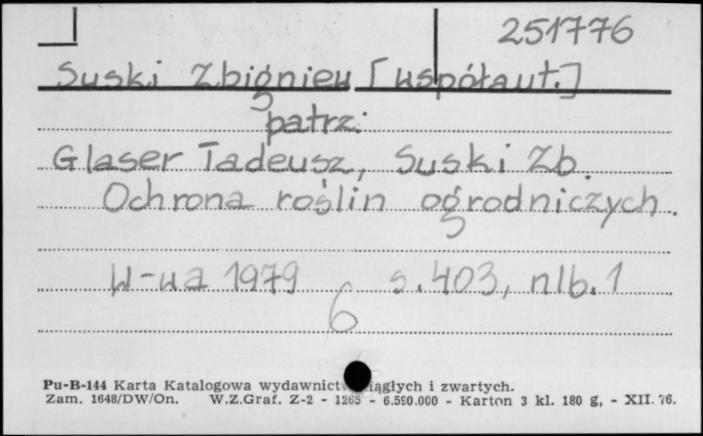 251776
Suski Zbigniew [współaut.]
patrz:
Glaser Tadeusz, Suski Zb.
Ochrona roślin ogrodniczych.
W-wa 1979 s. 403, nlb. 1
6
Pu-B-144 Karta Katalogowa wydawnict ciągłych i zwartych.
Zam. 1648/DW/On. W.Z.Graf. Z-2 - 1265 - 6.590.000 - Karton 3 kl. 180 g, - XII. 76.